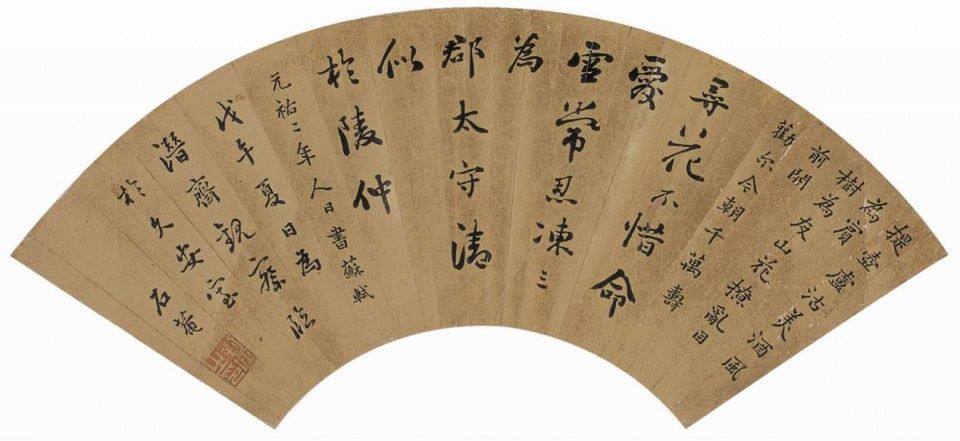 提壺盧沽美酒風
為賓
樹為友山花撩亂目
前開
勸尔今朝千萬壽
尋花不惜命
愛
雪常忍凍三
為
郡太守清
似
於陵仲
元祐二年人日書蘇軾
戊午夏日為
潛齋觀察臨
於久安室 石菴